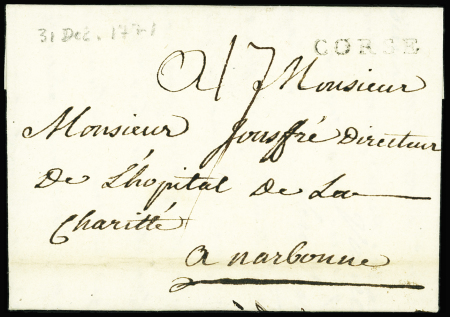 31 Dec. 1771
CORSE
A Monsieur
Monsieur Jouffré Directeur
De L'hopital De La
Charitté
a narbonne